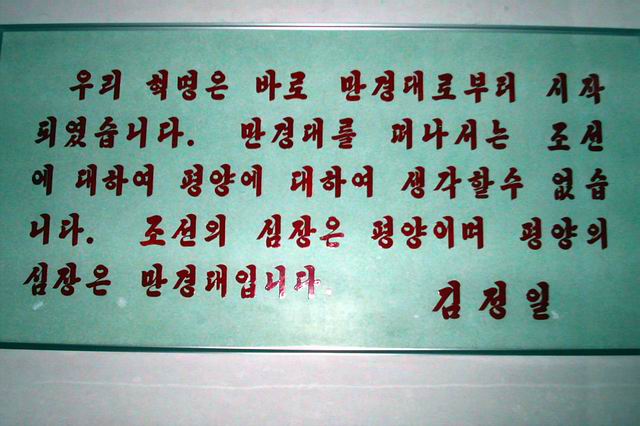 우리 혁명은 바로 만경대로부터 시작
되였습니다. 만경대를 떠나서는 조선
에 대하여 평양에 대하여 생각할수 없습
니다. 조선의 심장은 평양이며 평양의
심장은 만경대입니다.
김정일